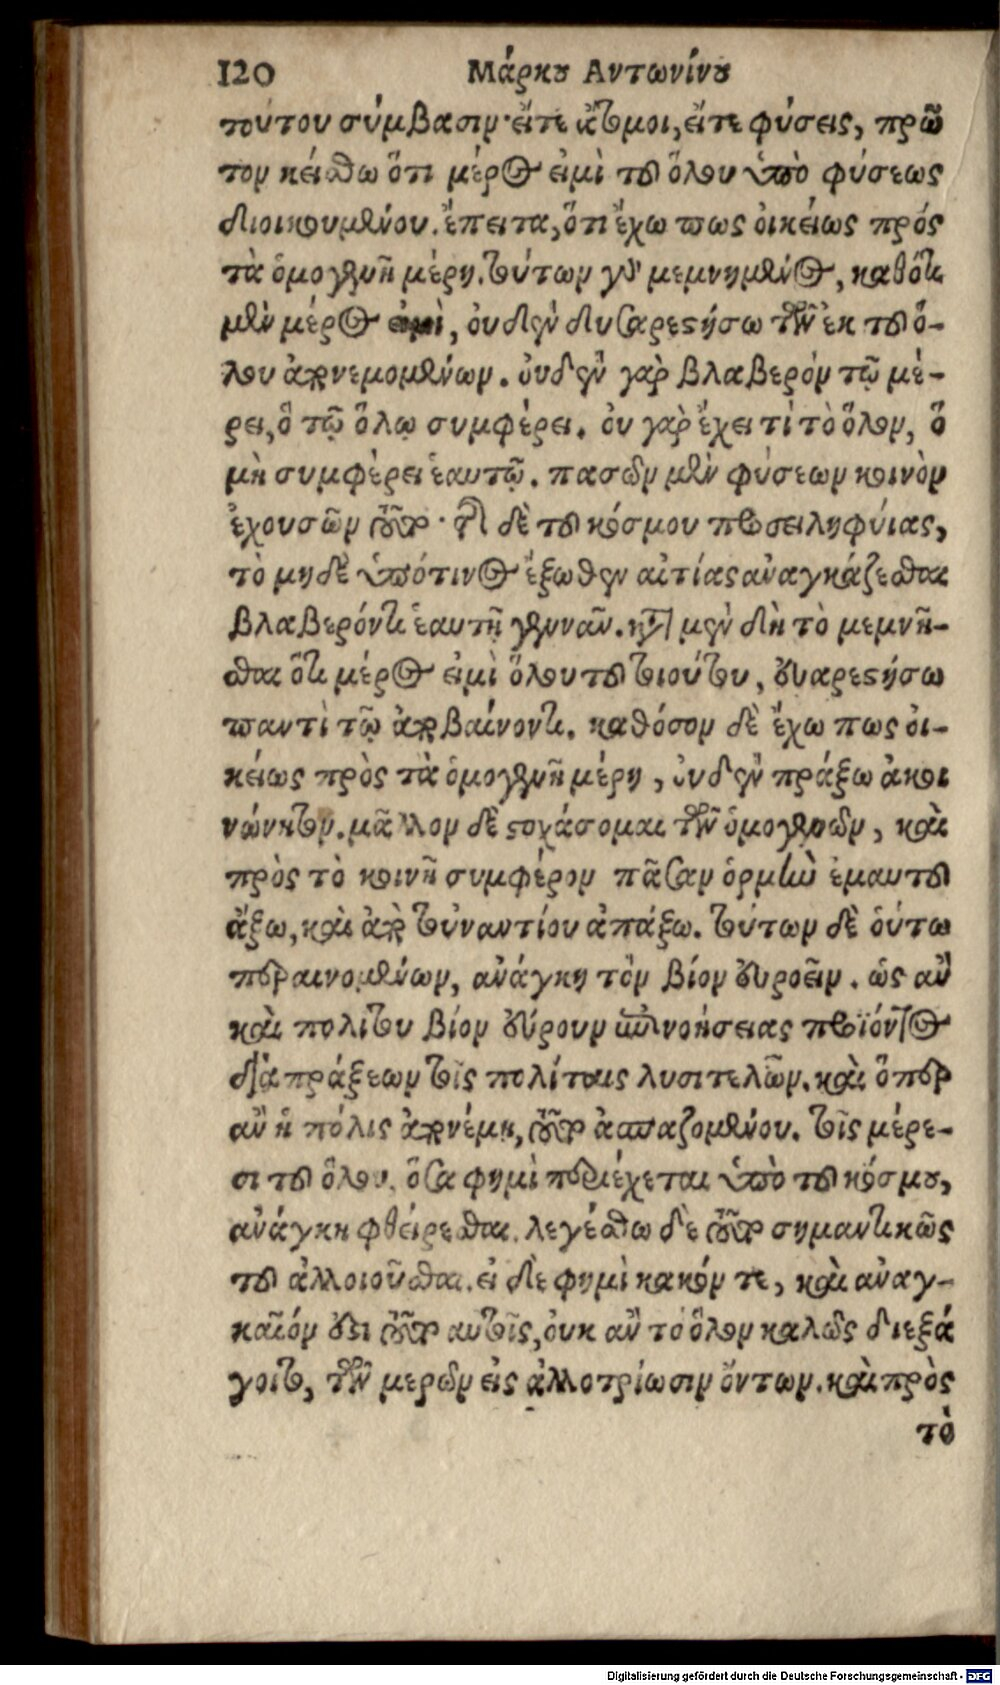 120 Μάρκου Αντωνίνου
τούτου σύμβασιν· εἴτε ἄτομοι, εἴτε φύσεις, πρῶ
τον κείσθω ὅτι μέρος εἰμὶ τοῦ ὅλου ὑπὸ φύσεως
διοικουμένου. ἔπειτα, ὅτι ἔχω πως οἰκείως πρός
τὰ ὁμογενῆ μέρη. τούτων γὰρ μεμνημένος, καθότι
μὲν μέρος εἰμὶ, οὐδὲν δυσαρεστήσω τῶν ἐκ τοῦ ὅ-
λου ἀπονεμομένων. οὐδὲν γὰρ βλαβερὸν τῷ μέ-
ρει, ὃ τῷ ὅλῳ συμφέρει. οὐ γὰρ ἔχει τὶ τὸ ὅλον, ὃ
μὴ συμφέρει ἑαυτῷ. πασῶν μὲν φύσεων κοινὸν
ἐχουσῶν τοῦτο· τῆς δὲ τοῦ κόσμου προσειληφύιας,
τὸ μηδὲ ὑπότινος ἔξωθεν αἰτίας ἀναγκάζεσθαι
βλαβερόντι ἑαυτῇ γεννᾶν. κατὰ μὲν δὴ τὸ μεμνῆ-
σθαι ὅτι μέρος εἰμὶ ὅλου τοῦ τοιούτου, εὐαρεστήσω
παντὶ τῷ ἀποβαίνοντι. καθόσον δὲ ἔχω πως οἰ-
κείως πρὸς τὰ ὁμογενῆ μέρη, οὐδὲν πράξω ἀκοι
νώνητον. μᾶλλον δὲ στοχάσομαι τῶν ὁμογενῶν, καὶ
πρὸς τὸ κοινῇ συμφέρον πᾶσαν ὁρμὴν ἐμαυτοῦ
ἄξω, καὶ ἀπὸ τοὐναντίου ἀπάξω. τούτων δὲ οὕτω
περαινομένων, ἀνάγκη τὸν βίον εὐροεῖν. ὡς ἂν
καὶ πολίτου βίον εὔρουν ἐπινοήσειας προϊόντος
διὰ πράξεων τοῖς πολίταις λυσιτελῶν. καὶ ὅπερ
ἂν ἡ πόλις ἀπονέμῃ, τοῦτο ἀσπαζομένου. τοῖς μέρε-
σι τοῦ ὅλου. ὅσα φημὶ περιέχεται ὑπὸ τοῦ κόσμου,
ἀνάγκη φθείρεσθαι. λεγέσθω δὲ τοῦτο σημαντικῶς
τοῦ ἀλλοιοῦσθαι. εἰ δὲ φημὶ κακόν τε, καὶ ἀναγ-
καῖόν ἐστι τοῦτο αὐτοῖς, οὐκ ἂν τὸ ὅλον καλῶς διεξά
γοιτο, τῶν μερῶν εἰς ἀλλοτρίωσιν ὄντων. καὶ πρὸς
τὸ
Digitalisierung gefördert durch die Deutsche Forschungsgemeinschaft - DFG